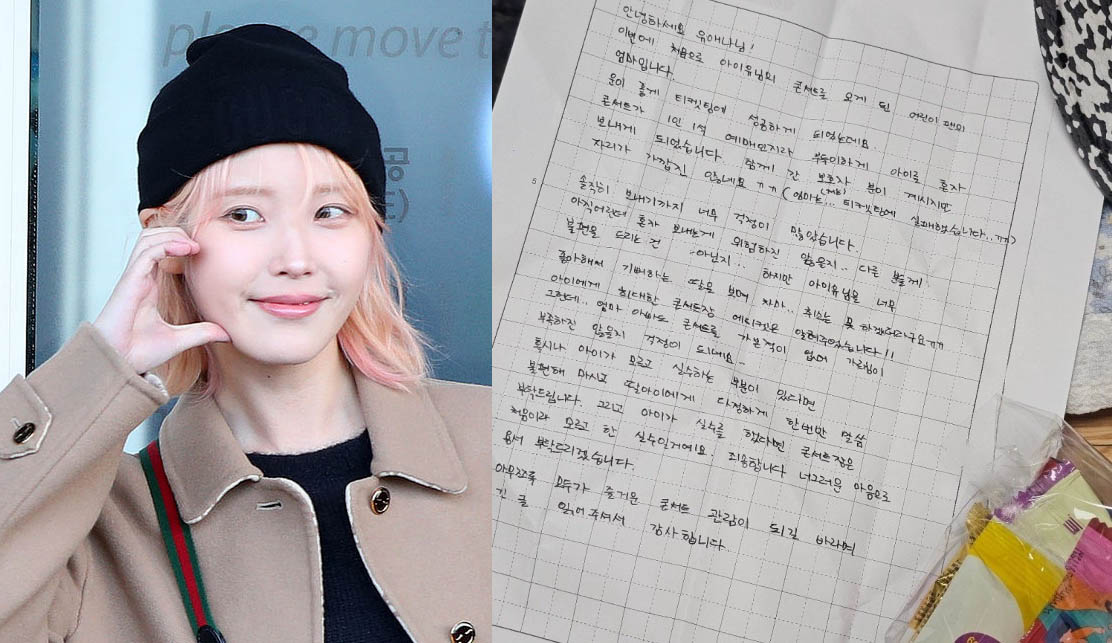 please move t
공
안녕하세요 유애나님!
이번에 처음으로 아이유님의 콘서트를 오게 된 어린이 팬의
엄마입니다.
운이 좋게 티켓팅에 성공하게 되었는데요.
콘서트가 1인 1석 예매인지라 부득이하게 아이로 혼자
보내게 되었습니다 함께 간 보호자 분이 계시지만
자리가 가깝진 않네요 ㅠㅠ (엄마는... 티켓팅에 실패했습니다..ㅠㅠ)
솔직히 보내기까지 너무 걱정이 많았습니다.
아직어린데 혼자 보내는게 위험하진 않을지.. 다른 분들께
불편을 드리는 건 아닌지.. 하지만 아이유님을 너무
좋아해서 기뻐하는 딸을 보며 차마.. 취소는 못 하겠더라구요ㅠㅠ
아이에게 최대한 콘서트장 에티켓은 알려주었습니다!!
그런데.. 엄마 아빠도 콘서트를 가본적이 없어 가르침이
부족하진 않을지 걱정이 되네요..
혹시나 아이가 모르고 실수하는 부분이 있다면
불편해 마시고 딸아이에게 다정하게 한번만 말씀
부탁드립니다. 그리고 아이가 실수를 했다면 콘서트장은
처음이라 모르고 한 실수일거예요 죄송합니다 너그러운 마음으로
용서 부탁드리겠습니다.
아무쪼록 모두가 즐거운 콘서트 관람이 되길 바라며
긴 글 읽어주셔서 감사합니다.
5